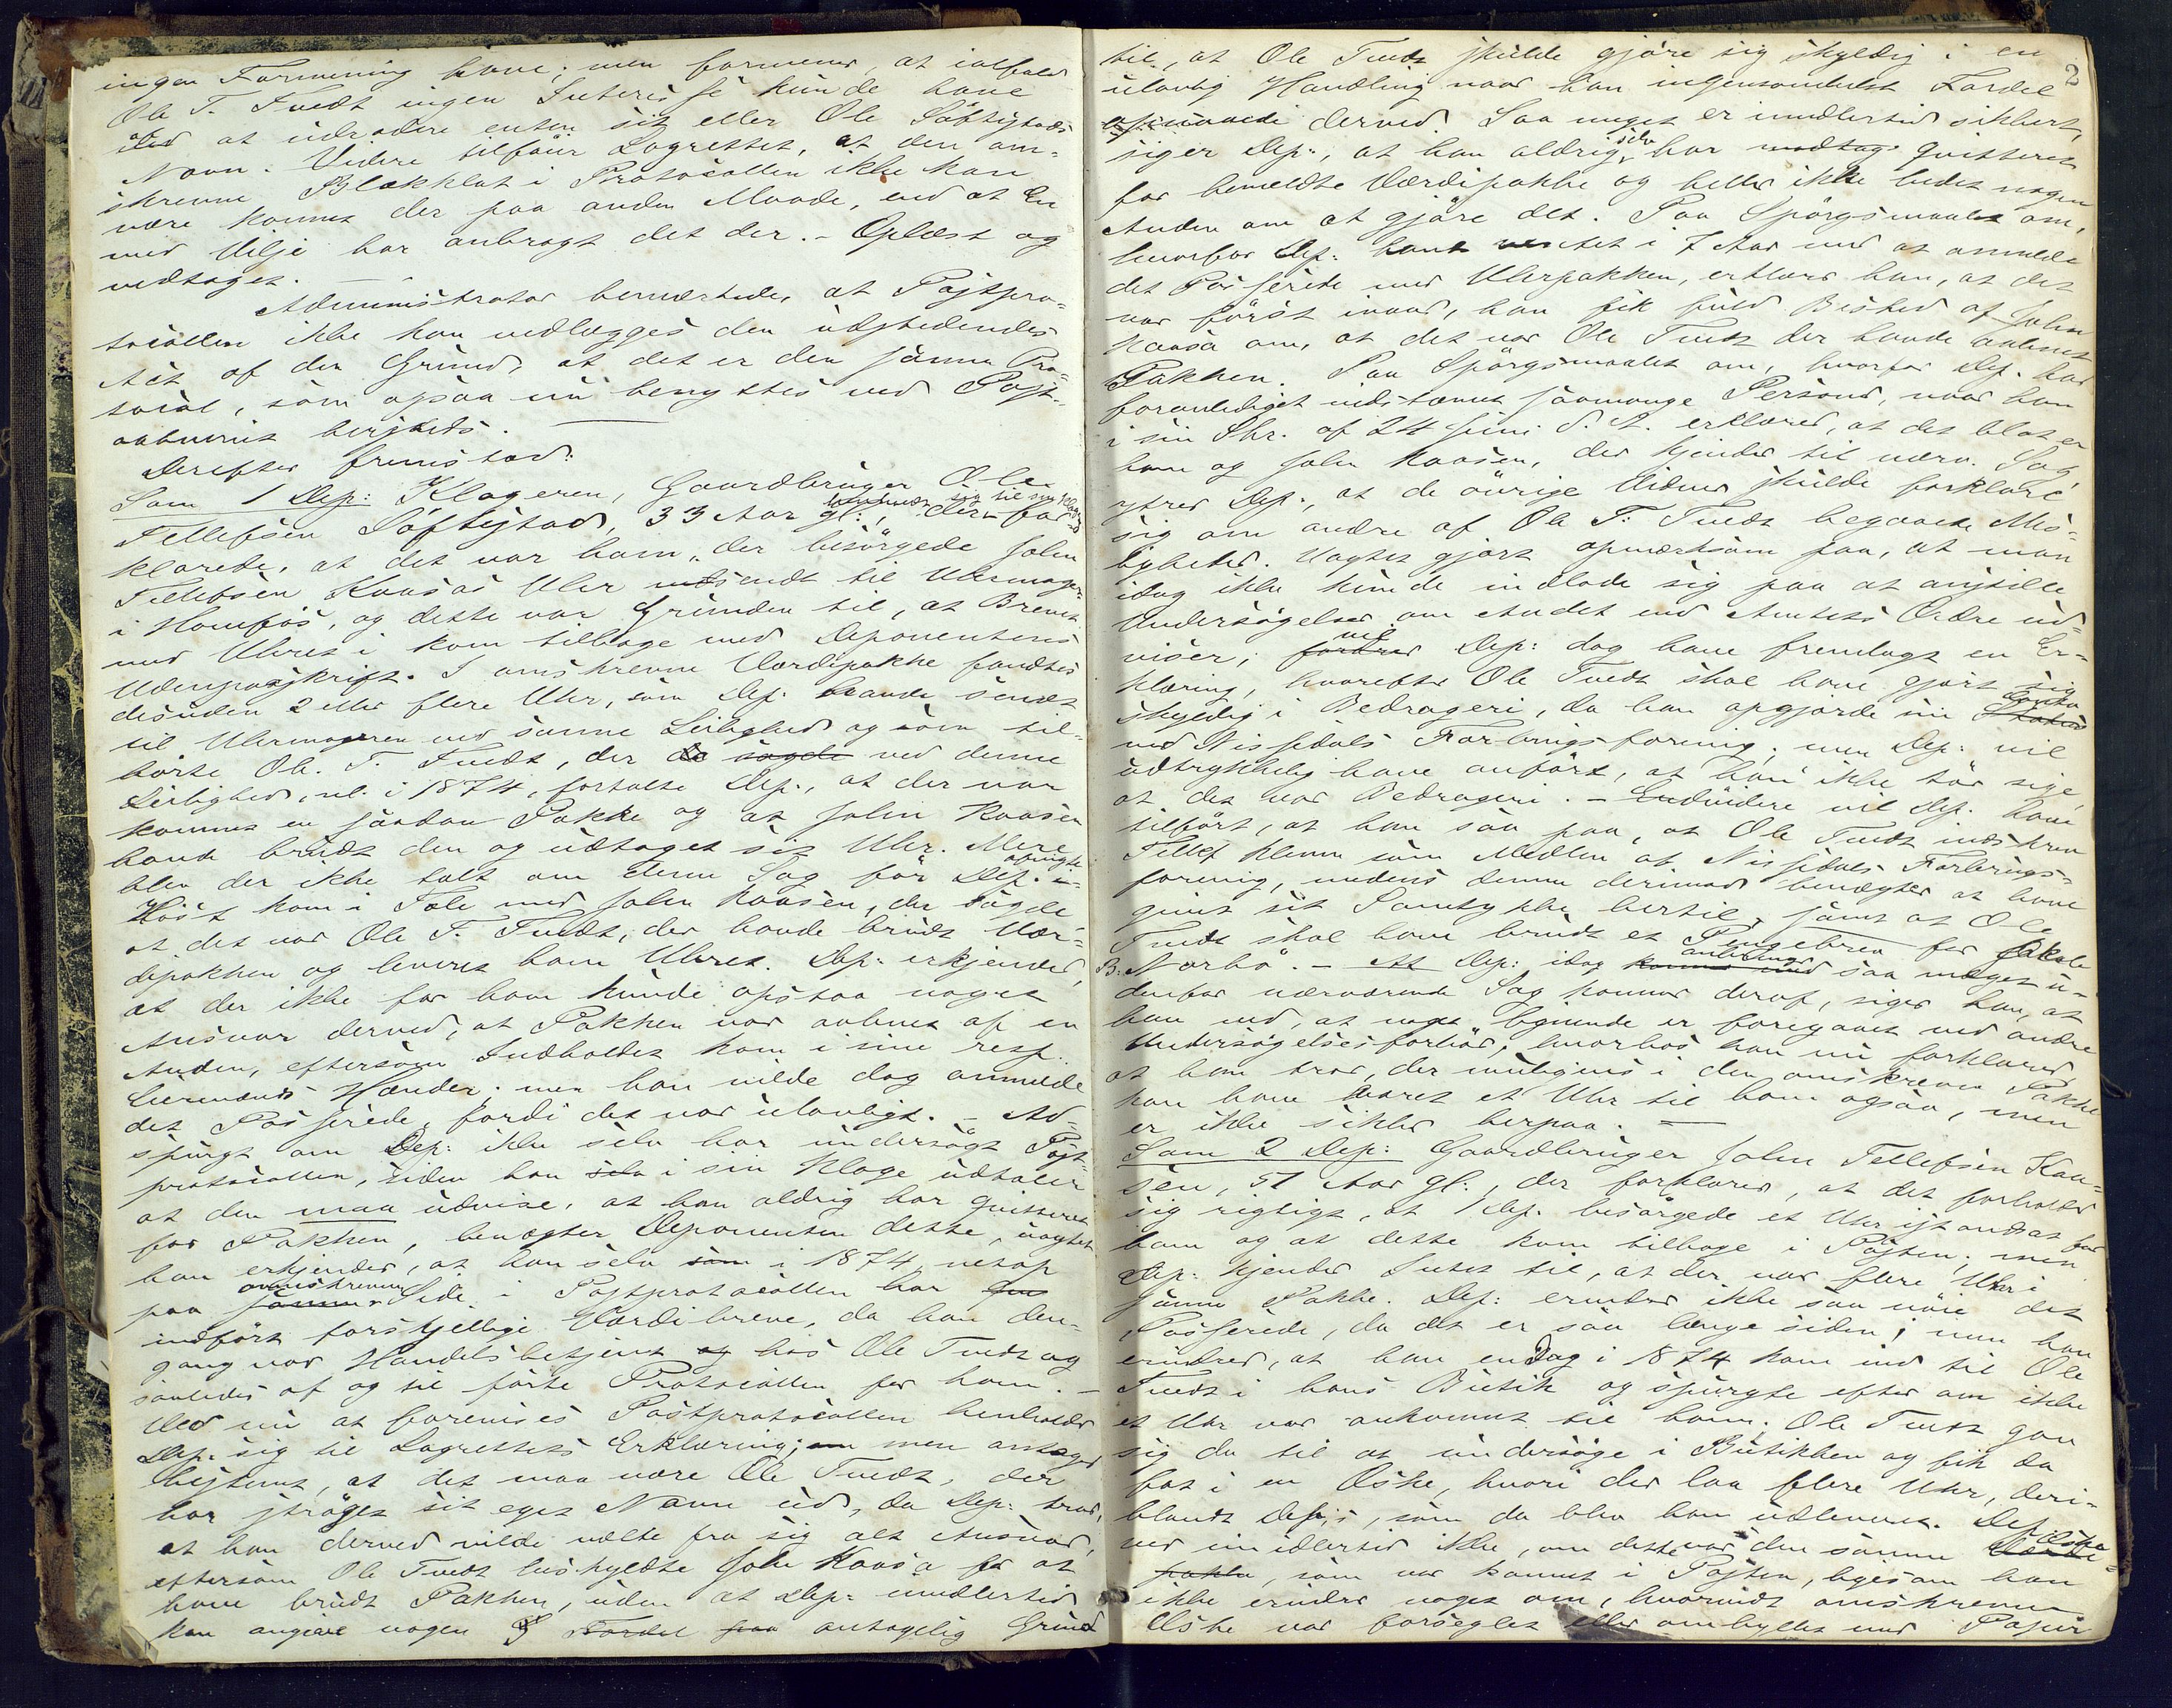 ingen Formening have; men formener, at ialfald
Ole T. Tvedt ingen Interesse kunde have
af at udradere enten sit eller Ole Söftestads
Navn. Videre tilföier Lagrettet, at den om-
skrevne Blækklat i Protocollen ikke kan
være kommet der paa anden Maade, end at En
med Vilje har anbragt det der. - Oplæst og
vedtaget. -
Administrator bemærkede, at Postpro-
tocollen ikke kan vedlægges den udstedendes
Act af den Grund, at det er den samme Pro-
tocol, som ogsaa nu benyttes ved Post-
aabneriet hersteds. -
Derefter fremstod:
Som 1 Dep: Klageren, Gaardbruger Ole
Tellefsen Söftestad, 33 Aar gl:, der for-
klarede, at det var ham, der besörgede John
Tellefsen Kaasas Uhr indsendt til Uhrmager
i Homfös, og dette var Grunden til, at Brevet
med Uhret i kom tilbage med Deponentens
Udenpaaskrift. I omskrevne Værdipakke fandtes
desuden 2 eller flere Uhr, som Dep: havde sendt
til Uhrmageren ved samme Leilighed og som til-
hörte Ole T. Tvedt, der da sagde ved denne
Leilighed, vel. i 1874, fortalte Dep., at der var
kommet en saadan Pakke og at John Kaasen
havde brudt den og udtaget sit Uhr. Mere
blev der ikke talt om denne Sag för Dep. afvigte
Höst kom i Tale med John Kaasen, der sagde
at det var Ole T. Tvedt, der havde brudt Vær-
dipakken og leveret ham Uhret. Dep: erkjender,
at der ikke for ham kunde opstaa noget
Ansvar derved, at Pakken var aabnet af en
Anden, eftersom Indholdet kom i sine resp.
Eiermænds Hænder; men han vilde dog anmelde
det Passerede, fordi det var ulovligt. - Ad-
spurgt om Dep: ikke selv har undersögt Post-
protocollen, siden han selv i sin Klage udtaler
at den maa udvise, at han aldrig har qvitteret
for Pakken, benægter Deponenten dette, uagtet
han erkjender, at han selv som i 1874, netop
paa samme omskrevne Side i Postprotocollen har
indfört forskjellige Værdibreve, da han den-
gang var Handelsbetjent og hos Ole Tvedt og
saaledes af og til förte Protocollen for ham. -
Ved nu at forevises Postprotocollen henholder
Dep. sig til Lagrettets Erklæring; men antager
bestemt, at det maa være Ole Tvedt, der
har ströget sit eget Navn ud, da Dep: tror,
at han derved vilde vælte fra sig alt Ansvar,
eftersom Ole Tvedt beskyldte John Kaasa for at
have brudt Pakken, uden at Dep: imidlertid
kan angive nogen Fordel paa antagelig Grund
2
til, at Ole Tvedt skulde gjöre sig skyldig i en
ulovlig Handling naar han ingensomhelst Fordel
opnaaede derved. Saa meget er imidlertid sikkert,
siger Dep:, at han aldrig selv har modtag qvitteret
for bemeldte Værdipakke og heller ikke bedet nogen
Anden om at gjöre det. Paa Spörgsmaalet om,
hvorfor Dep: havde ventet i 7 Aar med at anmelde
det Passerede med Uhrpakken, erklærer han, at det
var först iaar, han fik fuld Besked af John
Kaasa om, at det var Ole Tvedt der havde aabnet
Pakken. Paa Spörgsmaalet om, hvorfor Dep. har
foranlediget indstævnet saamange Personer, naar han
i sin Skr. af 24 Juni d. A. erklærer, at det blot er
ham og John Kaasen, der kjender til nærv. Sag
ytrer Dep:, at de övrige Vidner skulde forklare
sig om andre af Ole T. Tvedt begaaede Mis-
ligheder. Uagtet gjort opmærksom paa, at man
idag ikke kunde indlade sig paa at anstille
Undersögelser om Andet end Amtets Ordre ud-
viser, fordrer vil Dep: dog have fremlagt en Er-
klæring, hvorefter Ole Tvedt skal have gjort sig
skyldig i Bedrageri, da han opgjorde sin Conto
ved Nissedals Forbrugsforening; men Dep: vil
udtrykkelig have anfört, at han ikke tör sige,
at det var Bedrageri. - Endvidere vil Dep. have
tilfört, at han saa paa, at Ole Tvedt indskrev
Tellef Klemm som Medlem af Nissedals Forbrugs-
forening, medens denne derimod benægter at have
givet sit Samtykke hertil, samt at Ole
Tvedt skal have brudt et Pengebrev for Jakob
B. Norbö. - At Dep: idag anbringer saa meget u-
denfor nærværende Sag kommer deraf, siger han, at
han ved, at noget lignende er foregaaet ved andre
Undersögelsesforhör, hvorhos han nu forklarer,
at han tror, der muligens i den omskrevne Pakke
kan have været et Uhr til ham ogsaa, men
er ikke sikker herpaa. -
Som 2 Dep: Gaardbruger John Tellefsen Kaa-
sen, 51 Aar gl:, der forklarer, at det forholder
sig rigtigt, at 1 Dep. besörgede et Uhr istandsat for
ham og at dette kom tilbage i Posten; men
Dep: kjender Intet til, at der var flere Uhr i
samme Pakke. Dep: erindrer ikke saa nöie det
Passerede, da det er saa længe siden; men han
erindrer, at han en Dag i 1874 kom ind til Ole
Tvedt i hans Butik og spurgte efter om ikke
et Uhr var ankommet til ham. Ole Tvedt gav
sig da til at undersöge i Butikken og fik da
fat i en Æske, hvori der laa flere Uhr, deri-
blandt Dep:s, som da blev ham udleveret. Dep.
ved imidlertid ikke, om dette var den samme Æske
pakke, som var kommet i Posten, ligesom han
ikke erindrer noget om, hvorvidt omskrevne
Æske var forseglet eller omhyllet med Papir